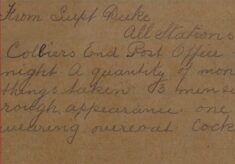 From Supt Duke
All Stations
Colliers End Post Office
night A quantity of mon
things taken 3 men se
rough appearance one
wearing overcoat Cock